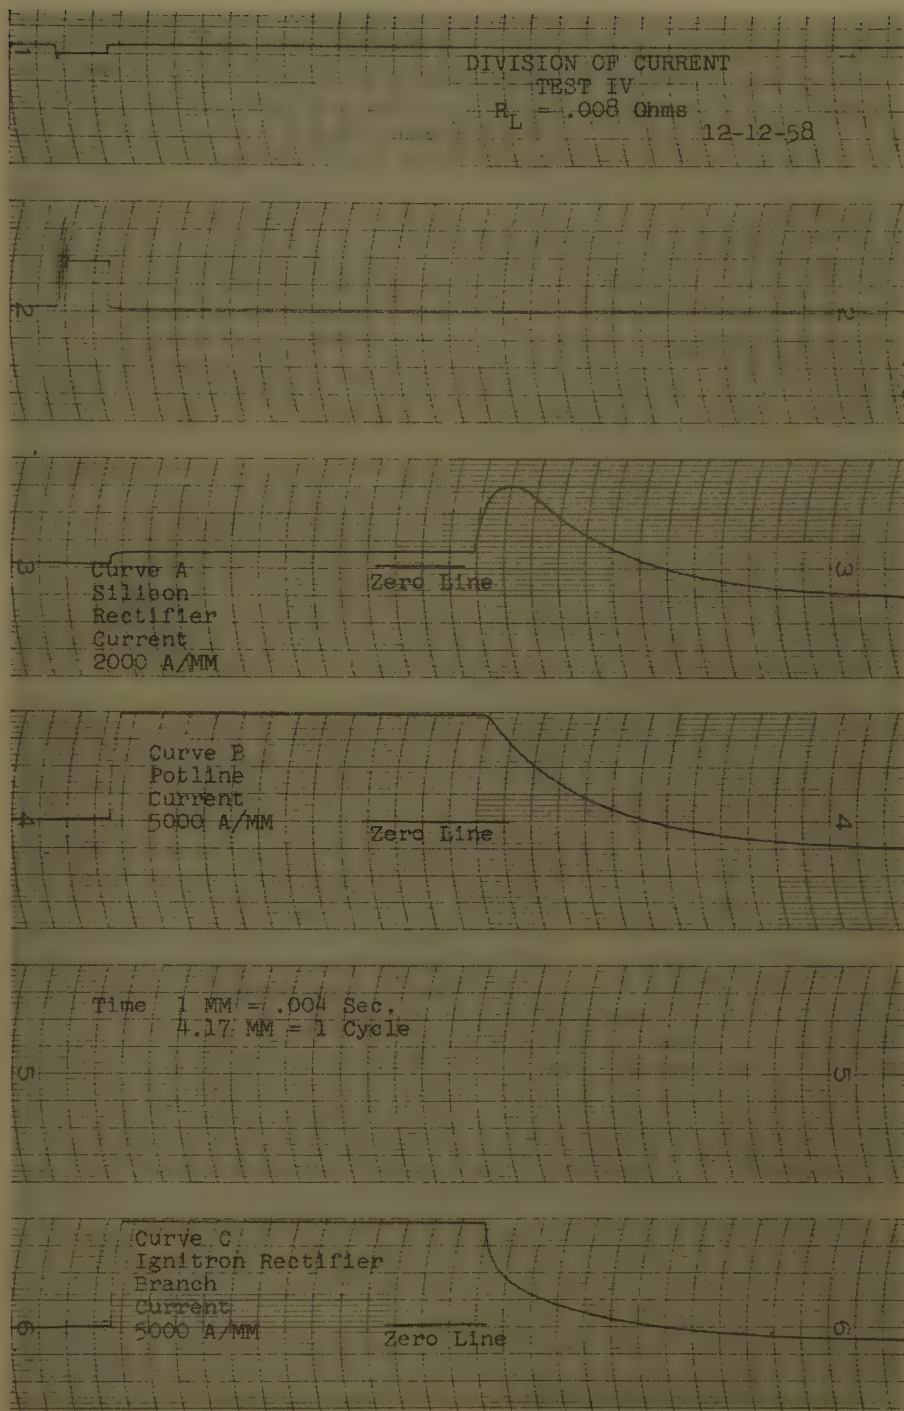 1
1
DIVISION OF CURRENT
TEST IV
R_L = .008 Ohms
12-12-58
2
2
3
3
Curve A
Silicon
Rectifier
Current
2000 A/MM
Zero Line
4
4
Curve B
Potline
Current
5000 A/MM
Zero Line
Time 1 MM = .004 Sec.
4.17 MM = 1 Cycle
5
5
Curve C
Ignitron Rectifier
Branch
Current
5000 A/MM
Zero Line
6
6